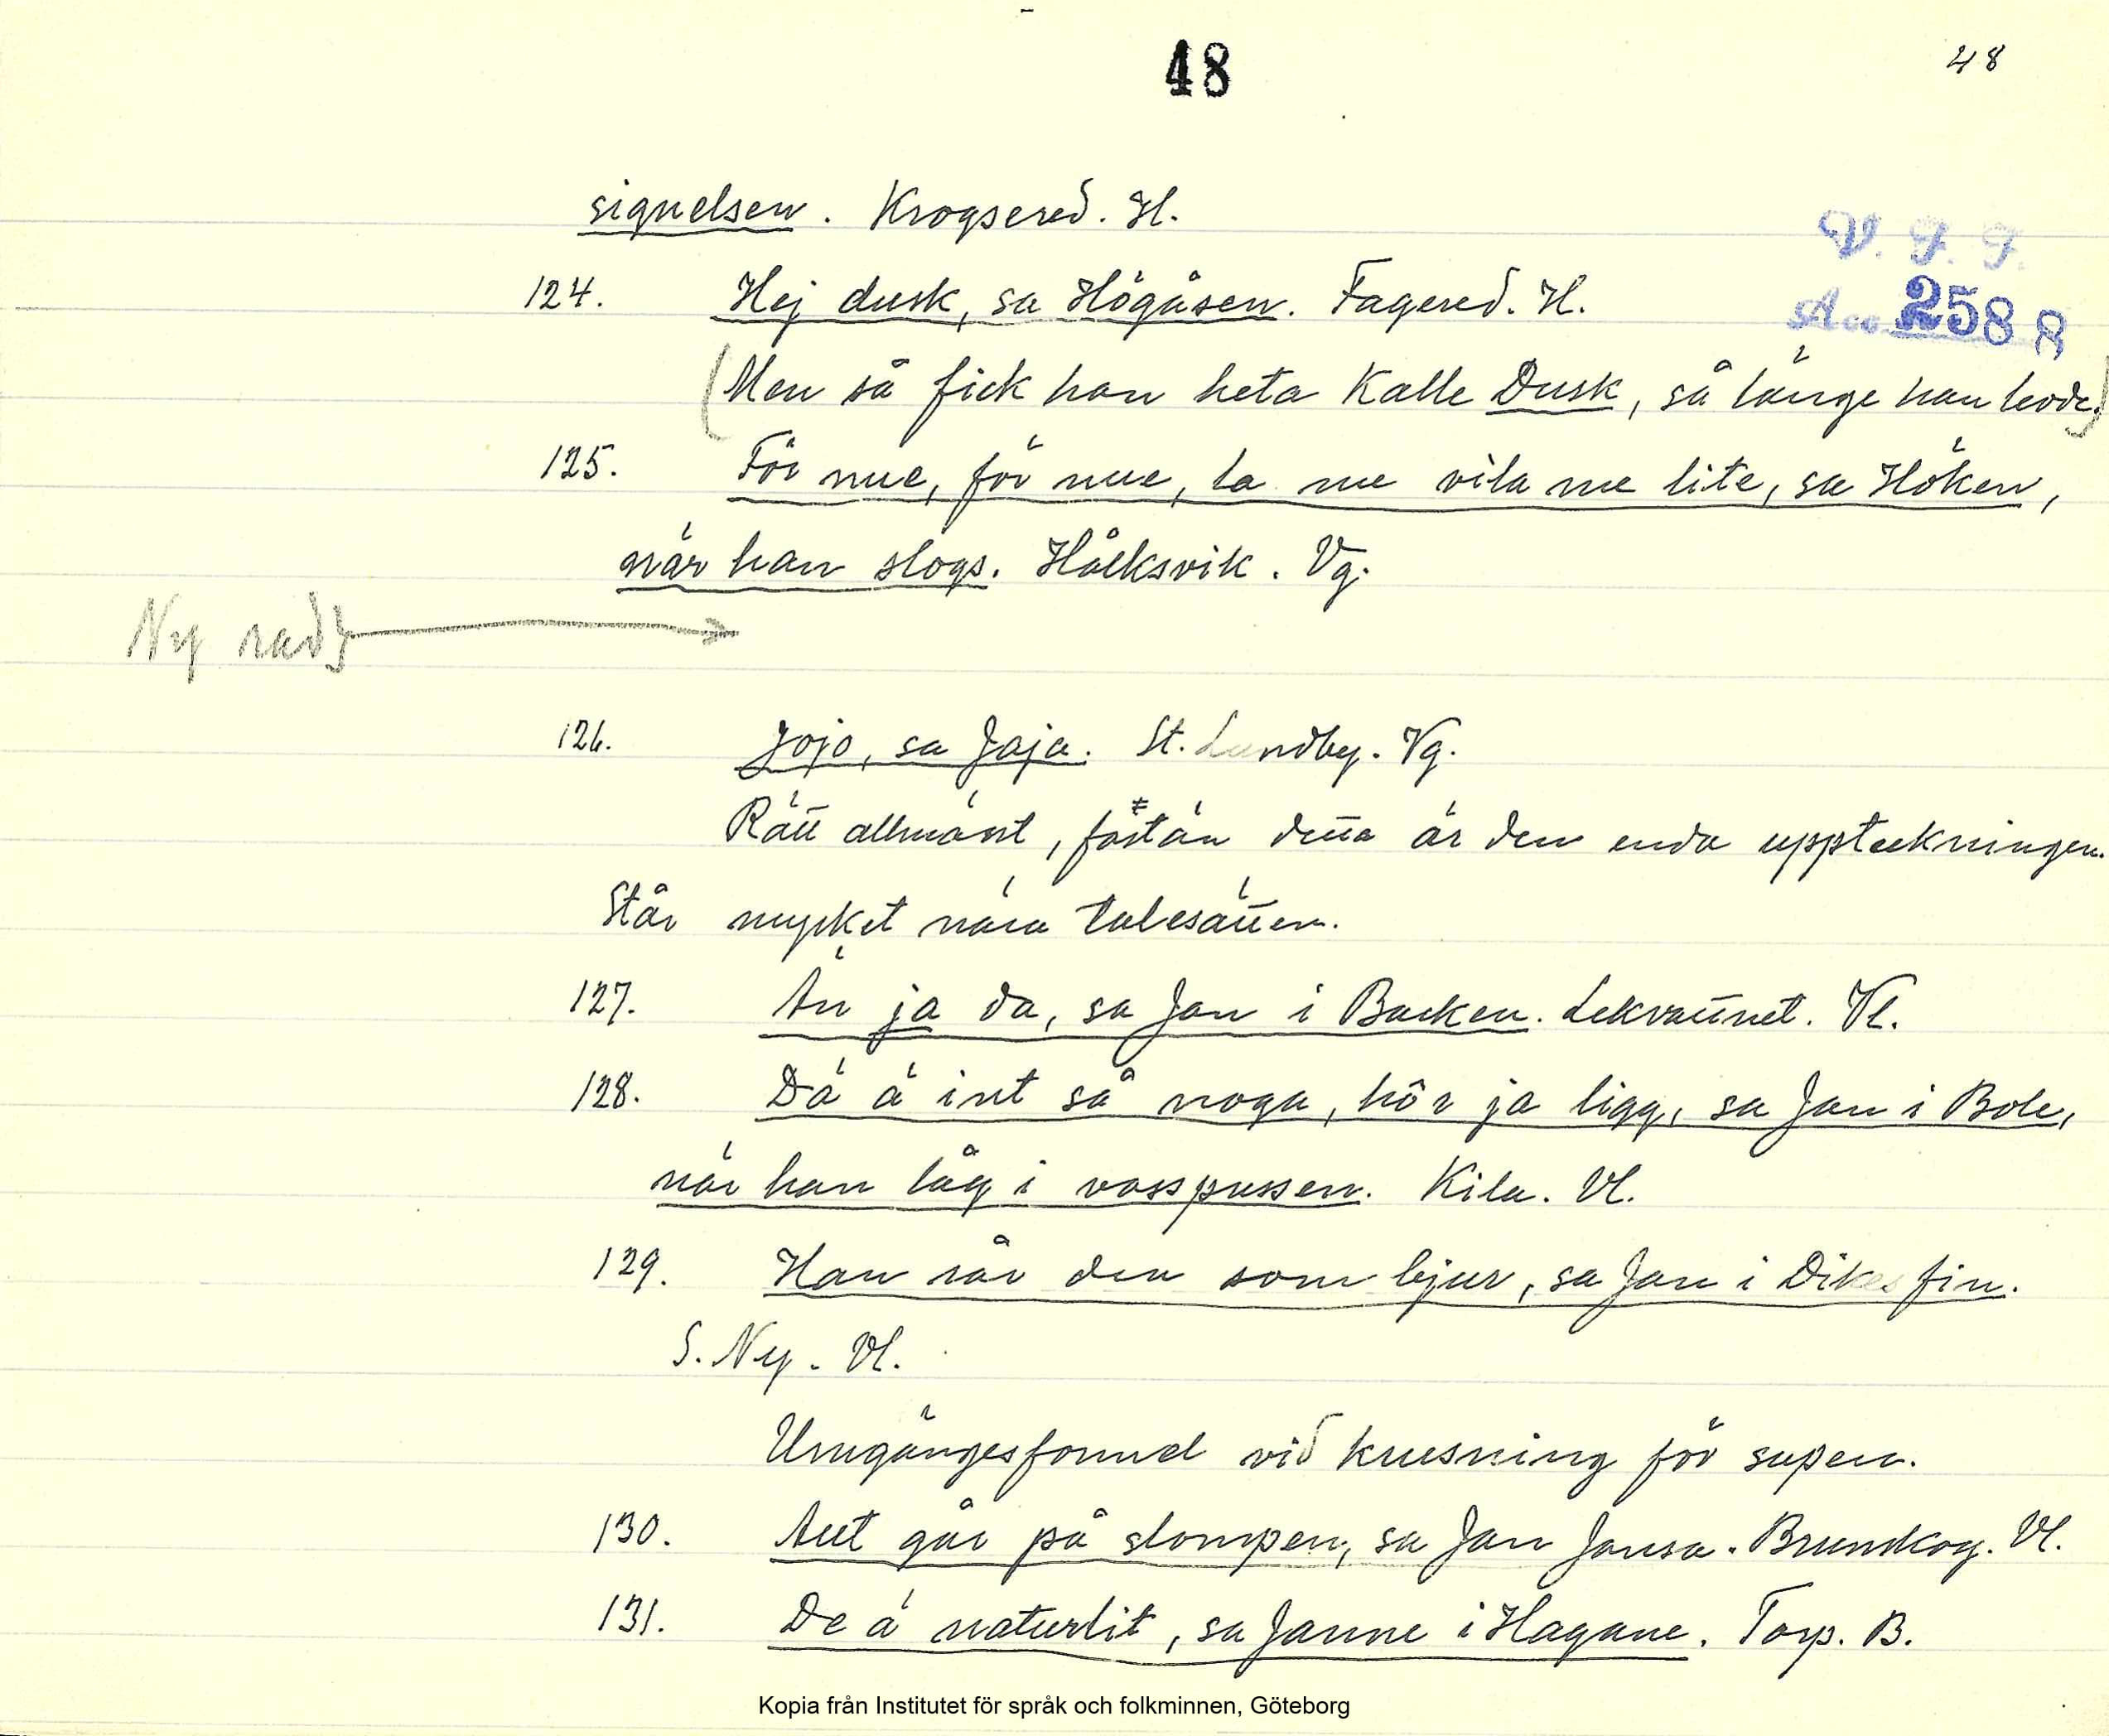 48
48
signelsen. Krogsered. H.
V. F. F.
Acc. 2588
124. Hej dusk, sa Högåsen. Fagered. H.
(Men så fick han heta Kalle Dusk, så länge han levde.)
125. För mue, för mue, la me vila me lite, sa Höken,
när han slogs. Hålksvik. Vg.
Ny rad
126. Jojo, sa Jaja. St. Lundby. Vg.
Rätt allmänt, fastän detta är den enda uppteckningen.
Står mycket nära talesätten.
127. Än ja da, sa Jan i Backen. Lekvattnet. Vl.
128. Dä ä int så noga, hôr ja ligg, sa Jan i Bole,
när han låg i vasspussen. Kila. Vl.
129. Han rår den som bjur, sa Jan i Dikesfin.
S. Ny. Vl.
Umgängesformel vid krusning för supen.
130. Allt går på slompen, sa Jan Jansa. Brunskog. Vl.
131. De ä naturlit, sa Janne i Hagane. Torp. B.
Kopia från Institutet för språk och folkminnen, Göteborg